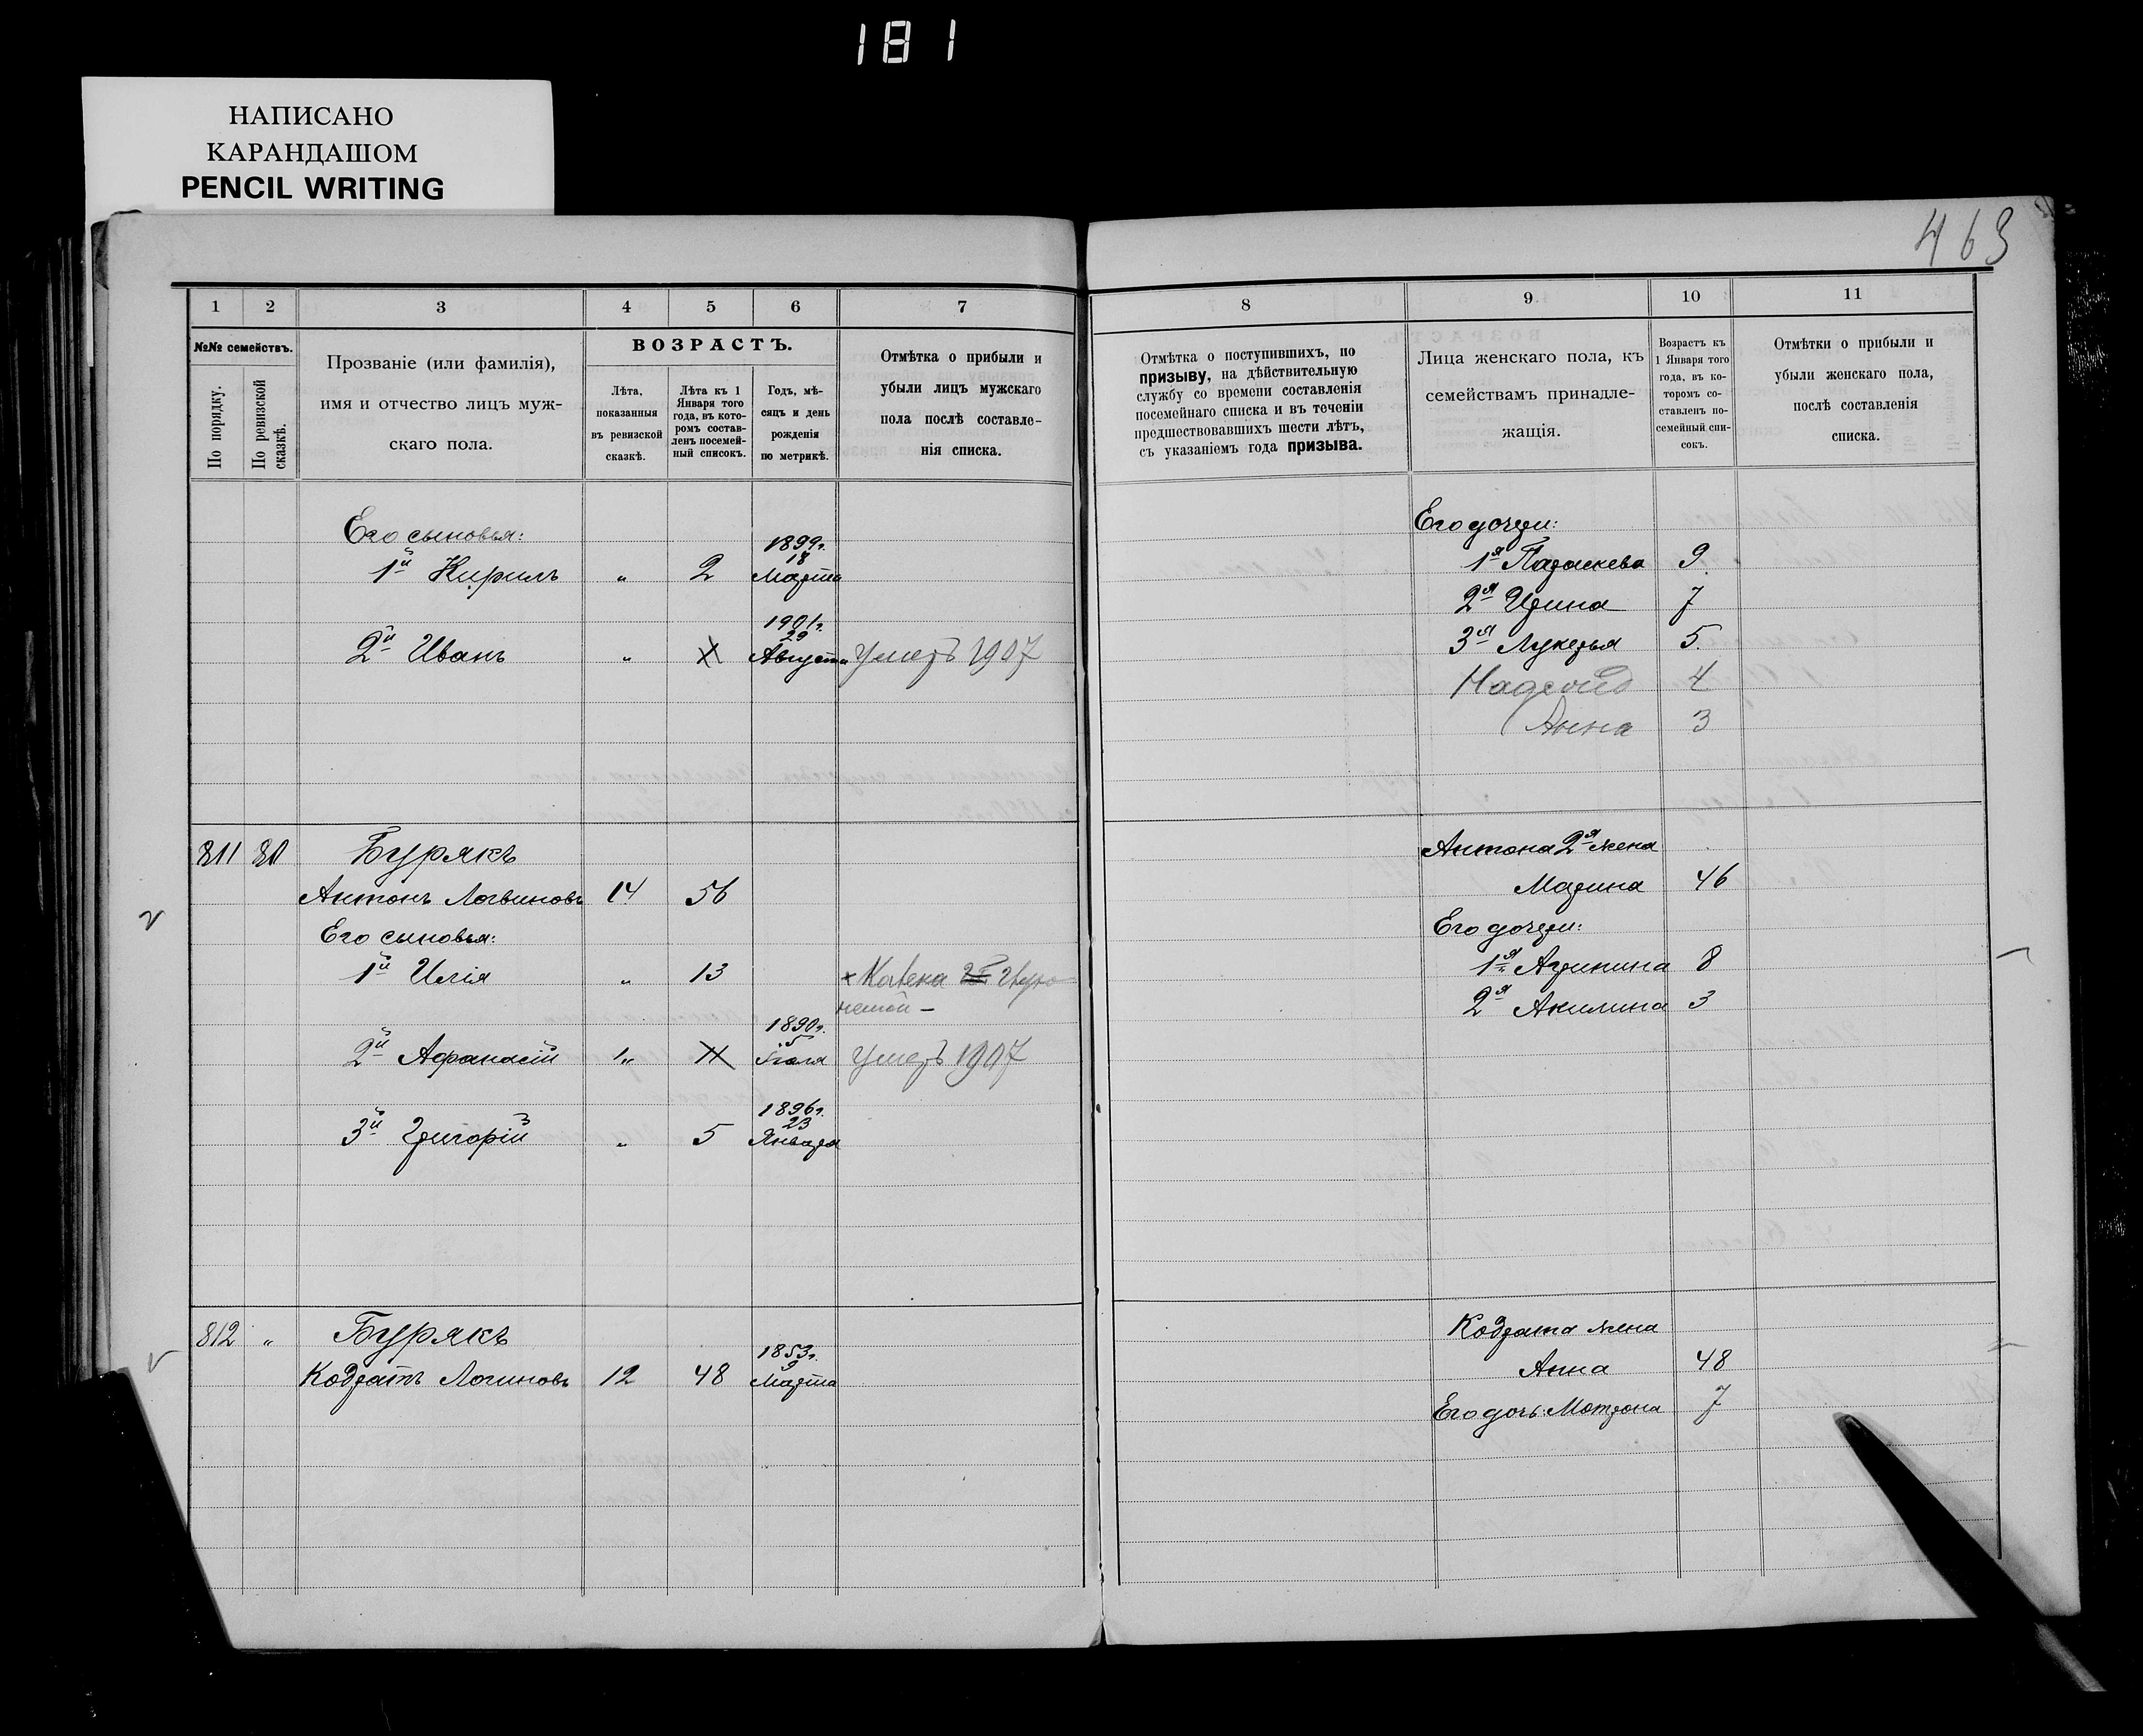 181
НАПИСАНО
КАРАНДАШОМ
PENCIL WRITING
463
1 2 3 4 5 6 7
№№ семействъ.
По порядку.
По ревизской сказкѣ.
Прозваніе (или фамилія),
имя и отчество лицъ муж-
скаго пола.
ВОЗРАСТЪ.
Лѣта,
показанныя
въ ревизской
сказкѣ.
Лѣта къ 1
Января того
года, въ кото-
ромъ состав-
ленъ посемей-
ный списокъ.
Годъ, мѣ-
сяцъ и день
рожденія
по метрикѣ.
Отмѣтка о прибыли и
убыли лицъ мужскаго
пола послѣ составле-
нія списка.
Его сыновья:
1й Кирилъ „ 2 1899г. 18 Марта
2й Иванъ „ 1901г. 29 Августа Умеръ 1907
811 80 Бурякъ
Антонъ Логвиновъ 14 56
Его сыновья:
1й Илія „ 13
2й Афанасій 1„ 11 1890г. 5 Іюля Умеръ 1907
3й Григорій „ 5 1896г. 23 Января
812 „ Бурякъ
Кодратъ Логиновъ 12 48 1853г. 9 Марта
8 9 10 11
Отмѣтка о поступившихъ, по
призыву, на дѣйствительную
службу со времени составленія
посемейнаго списка и въ теченіи
предшествовавшихъ шести лѣтъ,
съ указаніемъ года призыва.
Лица женскаго пола, къ
семействамъ принадле-
жащія.
Возрастъ къ
1 Января того
года, въ ко-
торомъ со-
ставленъ по-
семейный спи-
сокъ.
Отмѣтки о прибыли и
убыли женскаго пола,
послѣ составленія
списка.
Его дочери:
1я Параскева 9
2я Ирина 7
3я Лукерья 5.
4
Анна 3
Антона 2я жена
Марина 46
Его дочери:
1я Агрипина 8
2я Акилина 3
Кодрата жена
Анна 48
Его дочь: Мотрона 7